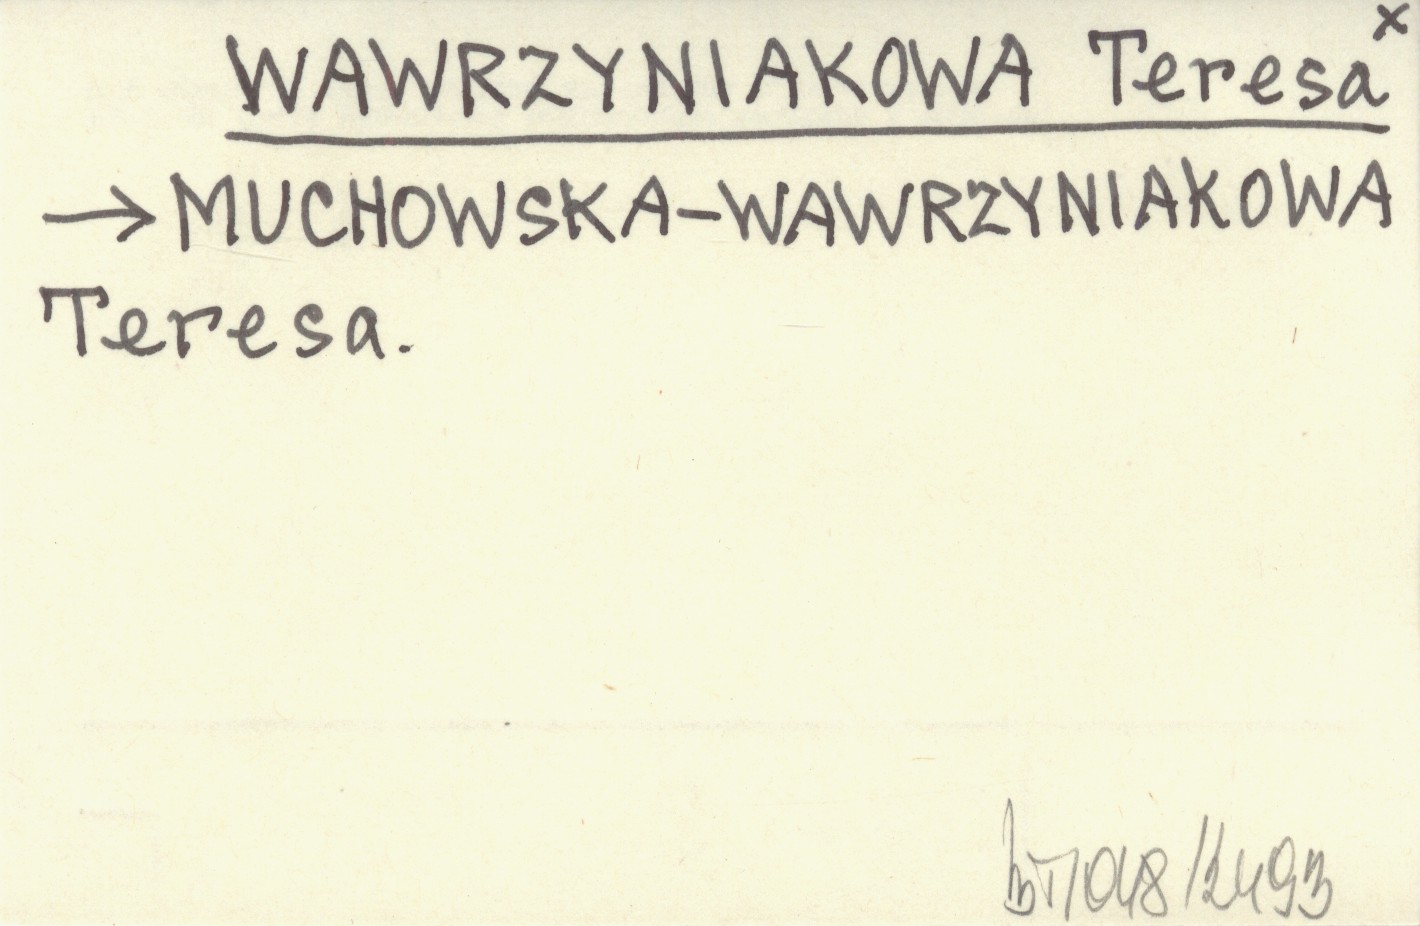 WAWRZYNIAKOWA Teresa x
→ MUCHOWSKA-WAWRZYNIAKOWA
Teresa.